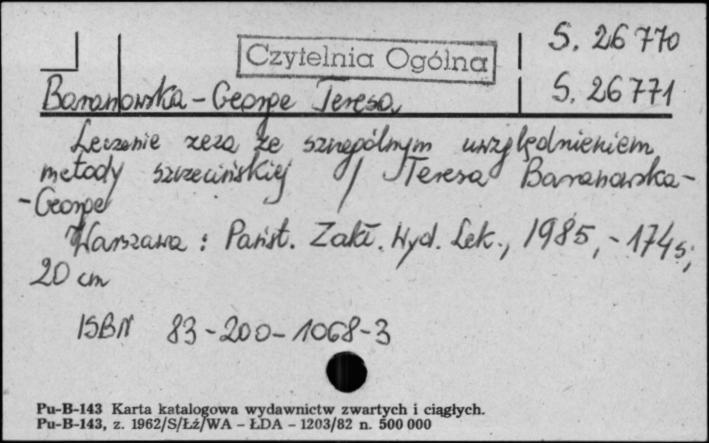 S. 26 770
Czytelnia Ogólna
S. 26 771
Baranowska-George Teresa
Leczenie zeza ze szczególnym uwzględnieniem
metody szczecińskiej / Teresa Baranowska-
-George
Warszawa : Państ. Zakł. Wyd. Lek., 1985, - 174 s;
20 cm
ISBN 83-200-1068-3
Pu-B-143 Karta katalogowa wydawnictw zwartych i ciągłych.
Pu-B-143, z. 1962/S/Łź/WA - ŁDA - 1203/82 n. 500 000